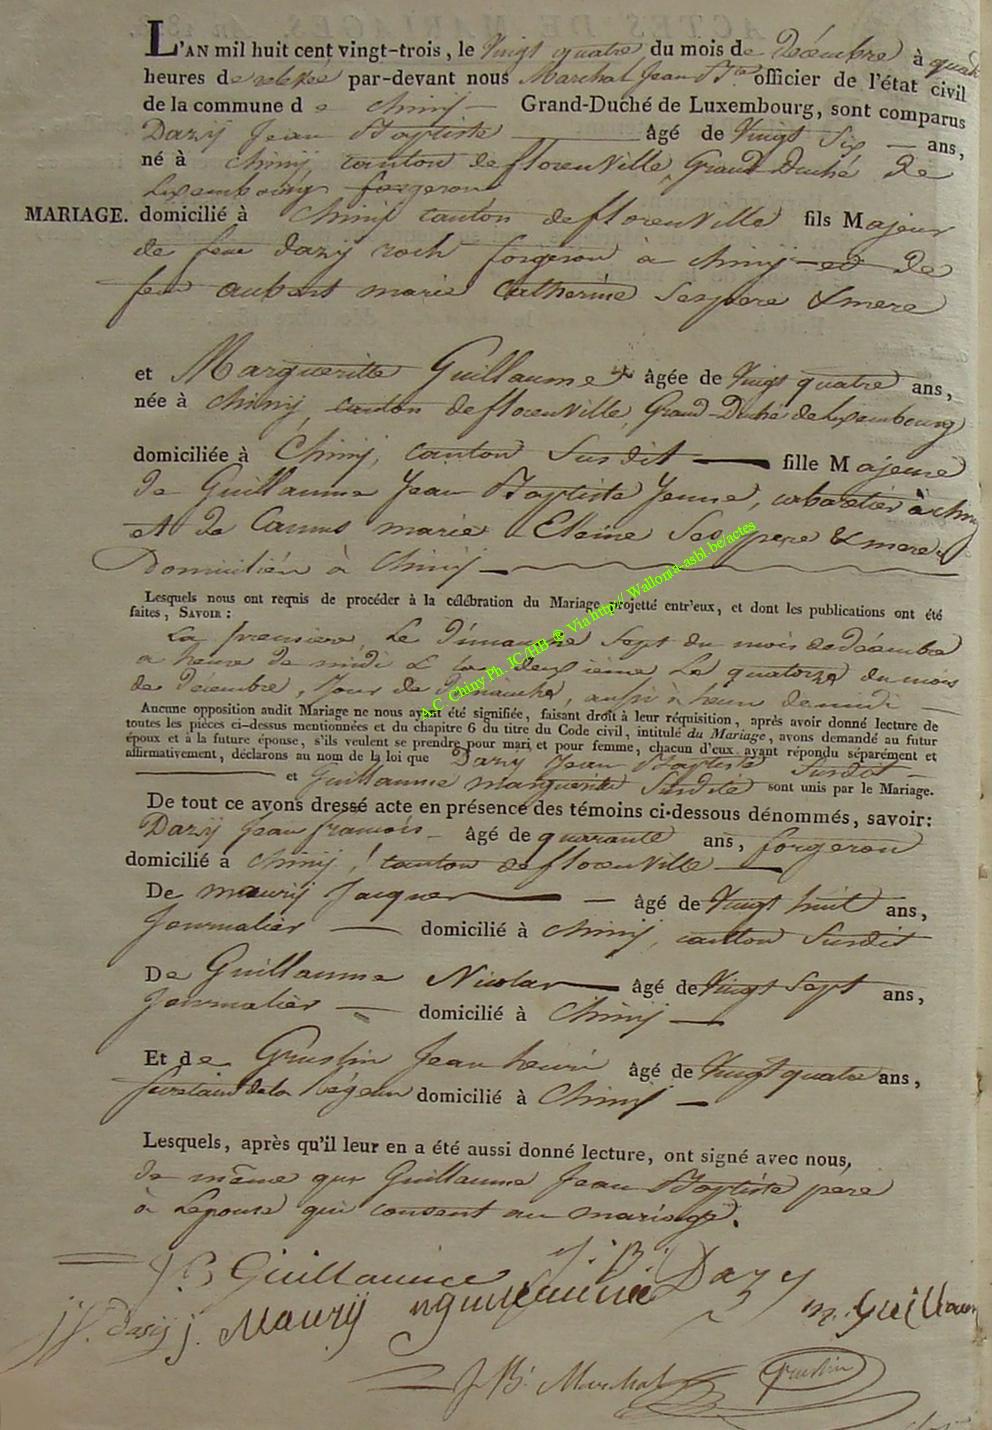 L'AN mil huit cent vingt-trois, le Vingt quatre du mois de Décembre à
heures de relevé par-devant nous Marchal Jean Bte officier de l'état civil
de la commune de Chiny — Grand-Duché de Luxembourg, sont comparus
Dazÿ Jean Baptiste — âgé de Vingt Six — ans,
né à Chinÿ, canton de florenville, Grand Duché de
Luxembourg forgeron
MARIAGE. domicilié à Chinÿ canton de florenville fils Majeur
de feu dazÿ roch forgeron à chinÿ — et De
feu aubert marie Catherine Ses pere & mere
et Margueritte Guillaume âgée de Vingt quatre ans,
née à Chinÿ canton de florenville, Grand-Duché de Luxembourg
domiciliée à Chinÿ, canton Susdit — fille Majeure
de Guillaume Jean Baptiste Jeune, cabaretier à chinÿ
et de marie Ses pere & mere
à Chinÿ —
Lesquels nous ont requis de procéder à la célébration du Mariage projetté entr'eux, et dont les publications ont été
faites, SAVOIR :
La premiere Le dimanche Sept du mois de décembre
a heure de midi & la deuxième Le quatorze du mois
de Décembre, Jour de dimanche, aussi à heure de midi —
Aucune opposition audit Mariage ne nous ayant été signifiée, faisant droit à leur réquisition, après avoir donné lecture de
toutes les pièces ci-dessus mentionnées et du chapitre 6 du titre du Code civil, intitulé du Mariage, avons demandé au futur
époux et à la future épouse, s'ils veulent se prendre pour mari et pour femme, chacun d'eux ayant répondu séparément et
affirmativement, déclarons au nom de la loi que Dazÿ Jean Baptiste Susdit —
— et Guillaume marguerite Susdite sont unis par le Mariage.
De tout ce avons dressé acte en présence des témoins ci-dessous dénommés, savoir:
Dazÿ Jean françois — âgé de quarante ans, forgeron
domicilié à chinÿ, canton de florenville —
De maurÿ Jacques — âgé de Vingt huit ans,
Journalier — domicilié à chinÿ, canton Susdit
De Guillaume Nicolas — âgé de Vingt Sept ans,
Journalier — domicilié à Chinÿ —
Et de Jean henri âgé de Vingt quatre ans,
domicilié à Chinÿ —
Lesquels, après qu'il leur en a été aussi donné lecture, ont signé avec nous,
de même que Guillaume Jean Baptiste pere
à Lepouse qui consent au mariage.
J B Guillaume J. B. Dazy
J f. Dasÿ j. Maurÿ m. Guillaum
J B. Marchal
A.C. Chiny Ph. JC/HB @ Via http// Wallonia-asbl.be/actes